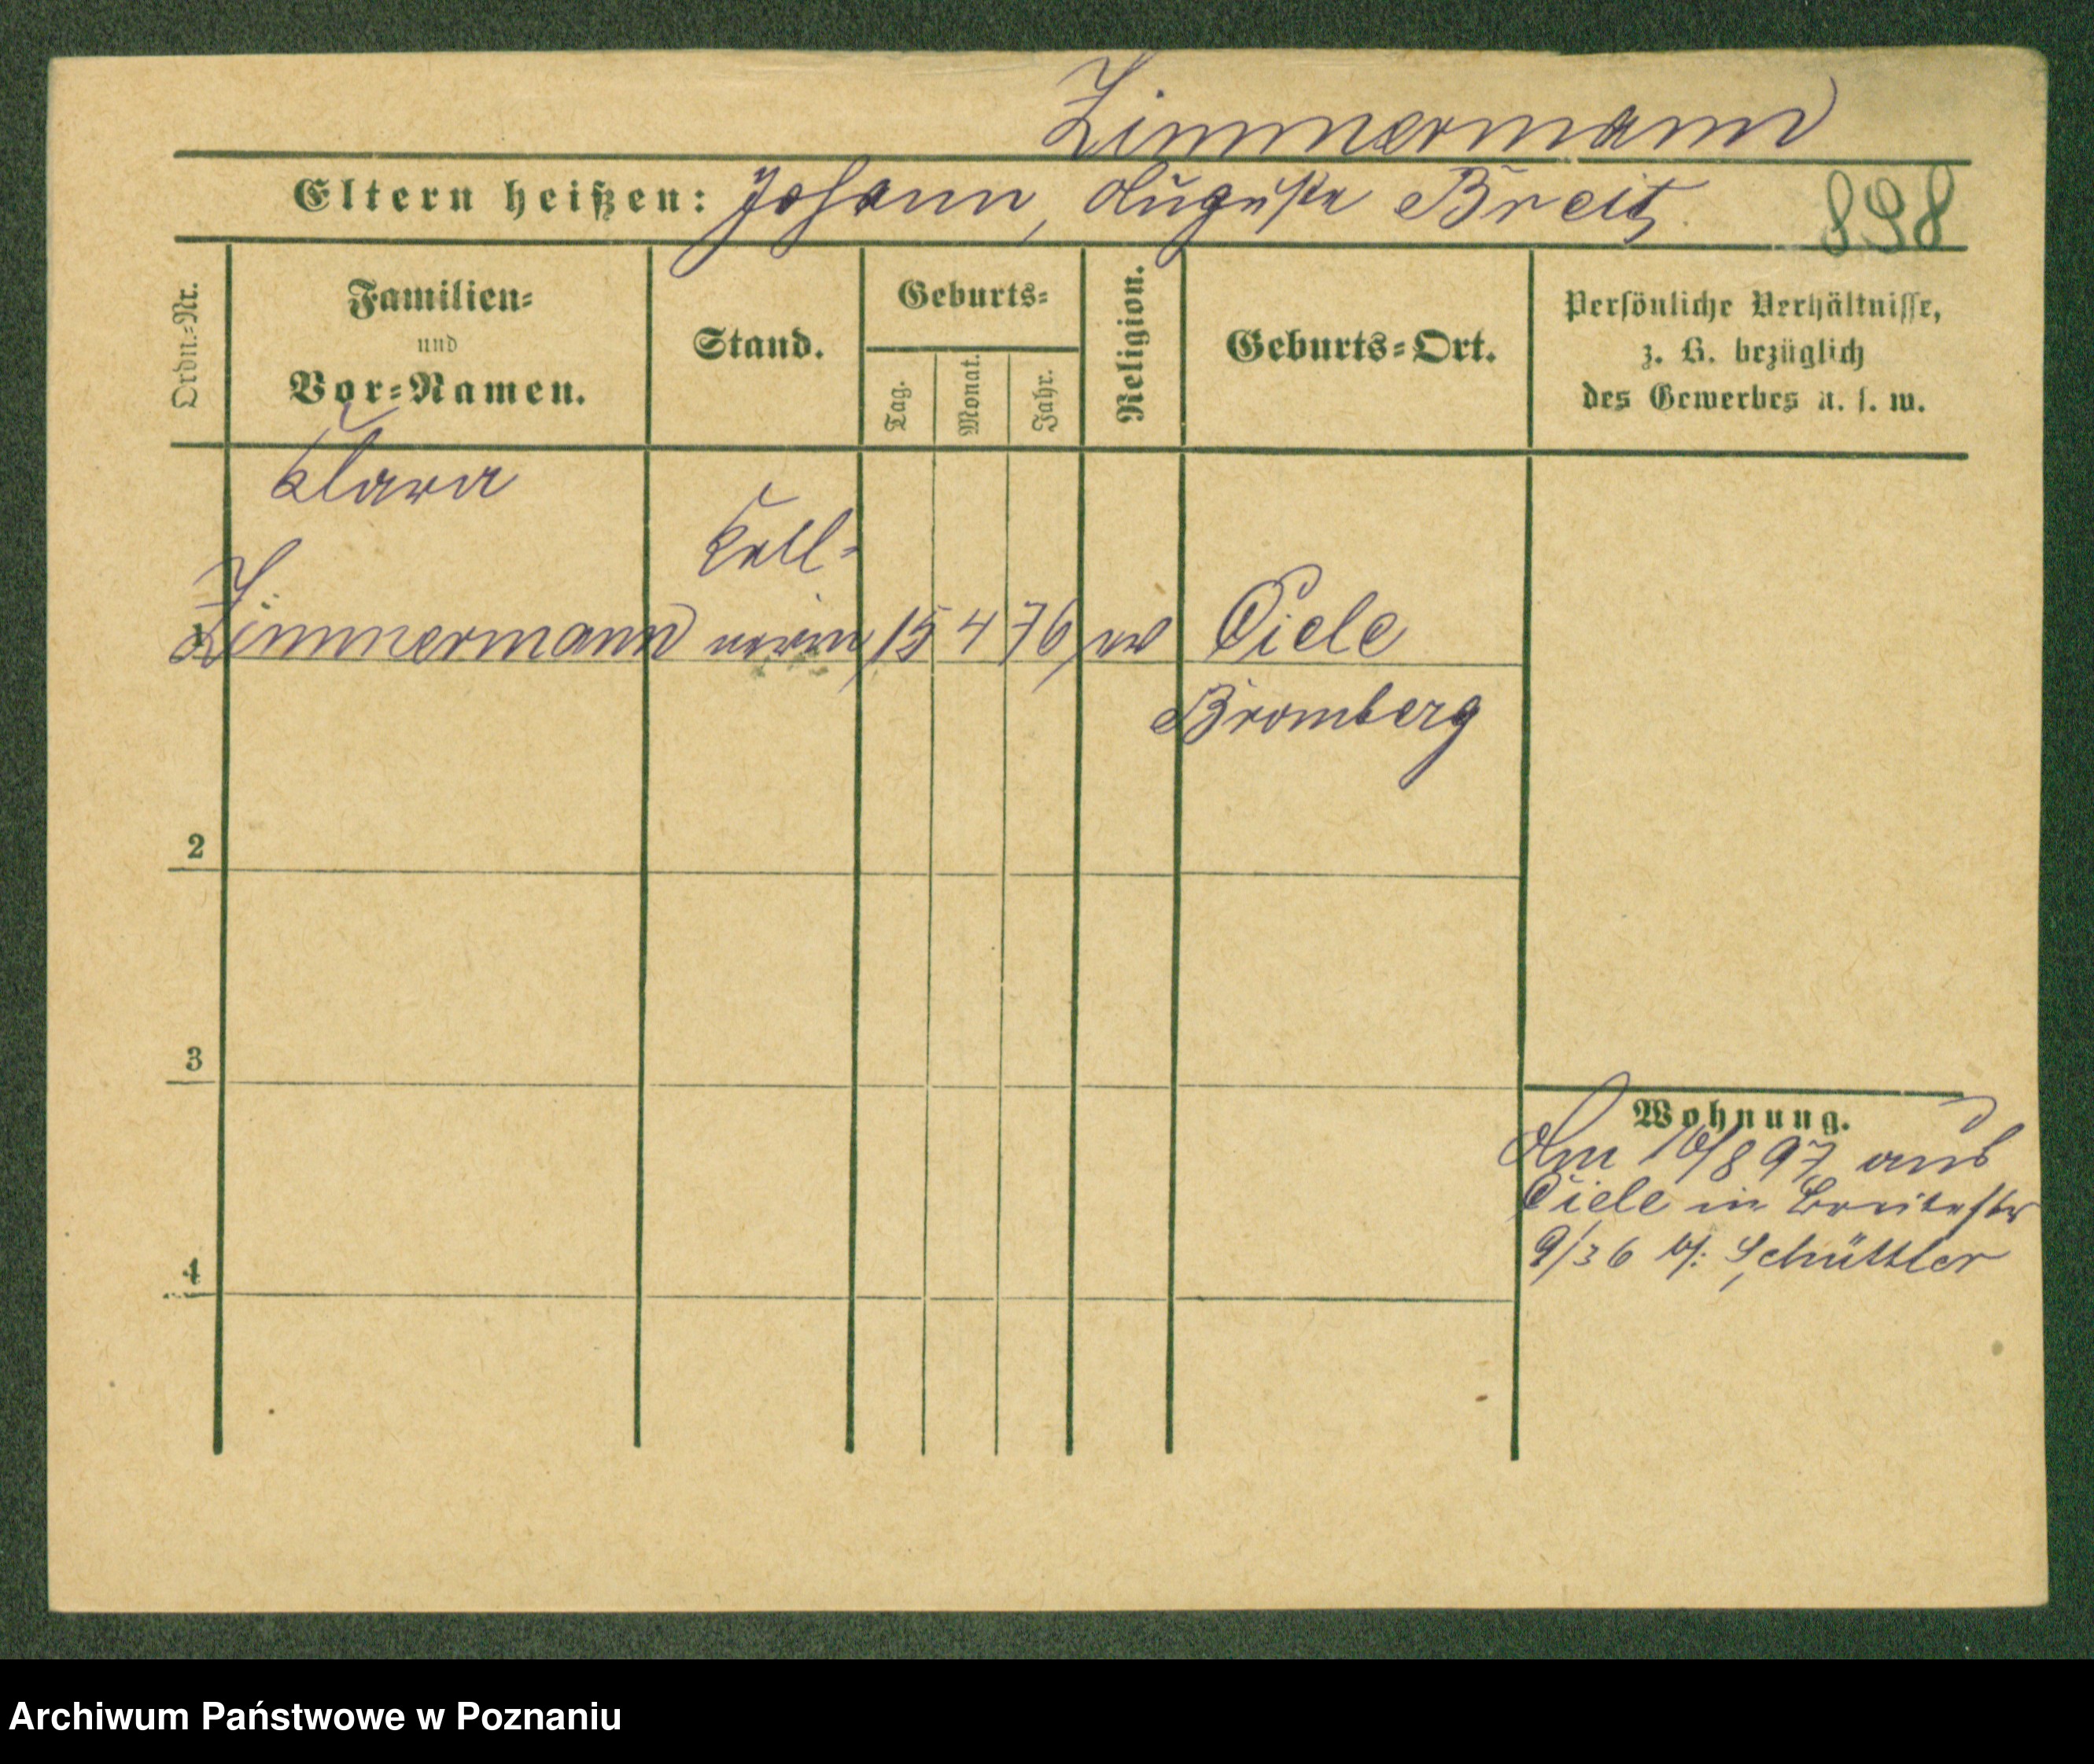 Zimmermann
Eltern heißen: Johann, Auguste Breit
898
Ordn.=Nr.
Familien=
und
Vor=Namen.
Stand.
Geburts=
Tag.
Monat.
Jahr.
Religion.
Geburts=Ort.
Persönliche Verhältnisse,
z. B. bezüglich
des Gewerbes u. s. w.
Klara
Kell-
1 Zimmermann nerin 15 4 76 Ciele
Bromberg
2
3
4
Wohnung.
Am 10/8 97 aus
Ciele in Breitestr
9/36 b/: Schüttler
Archiwum Państwowe w Poznaniu